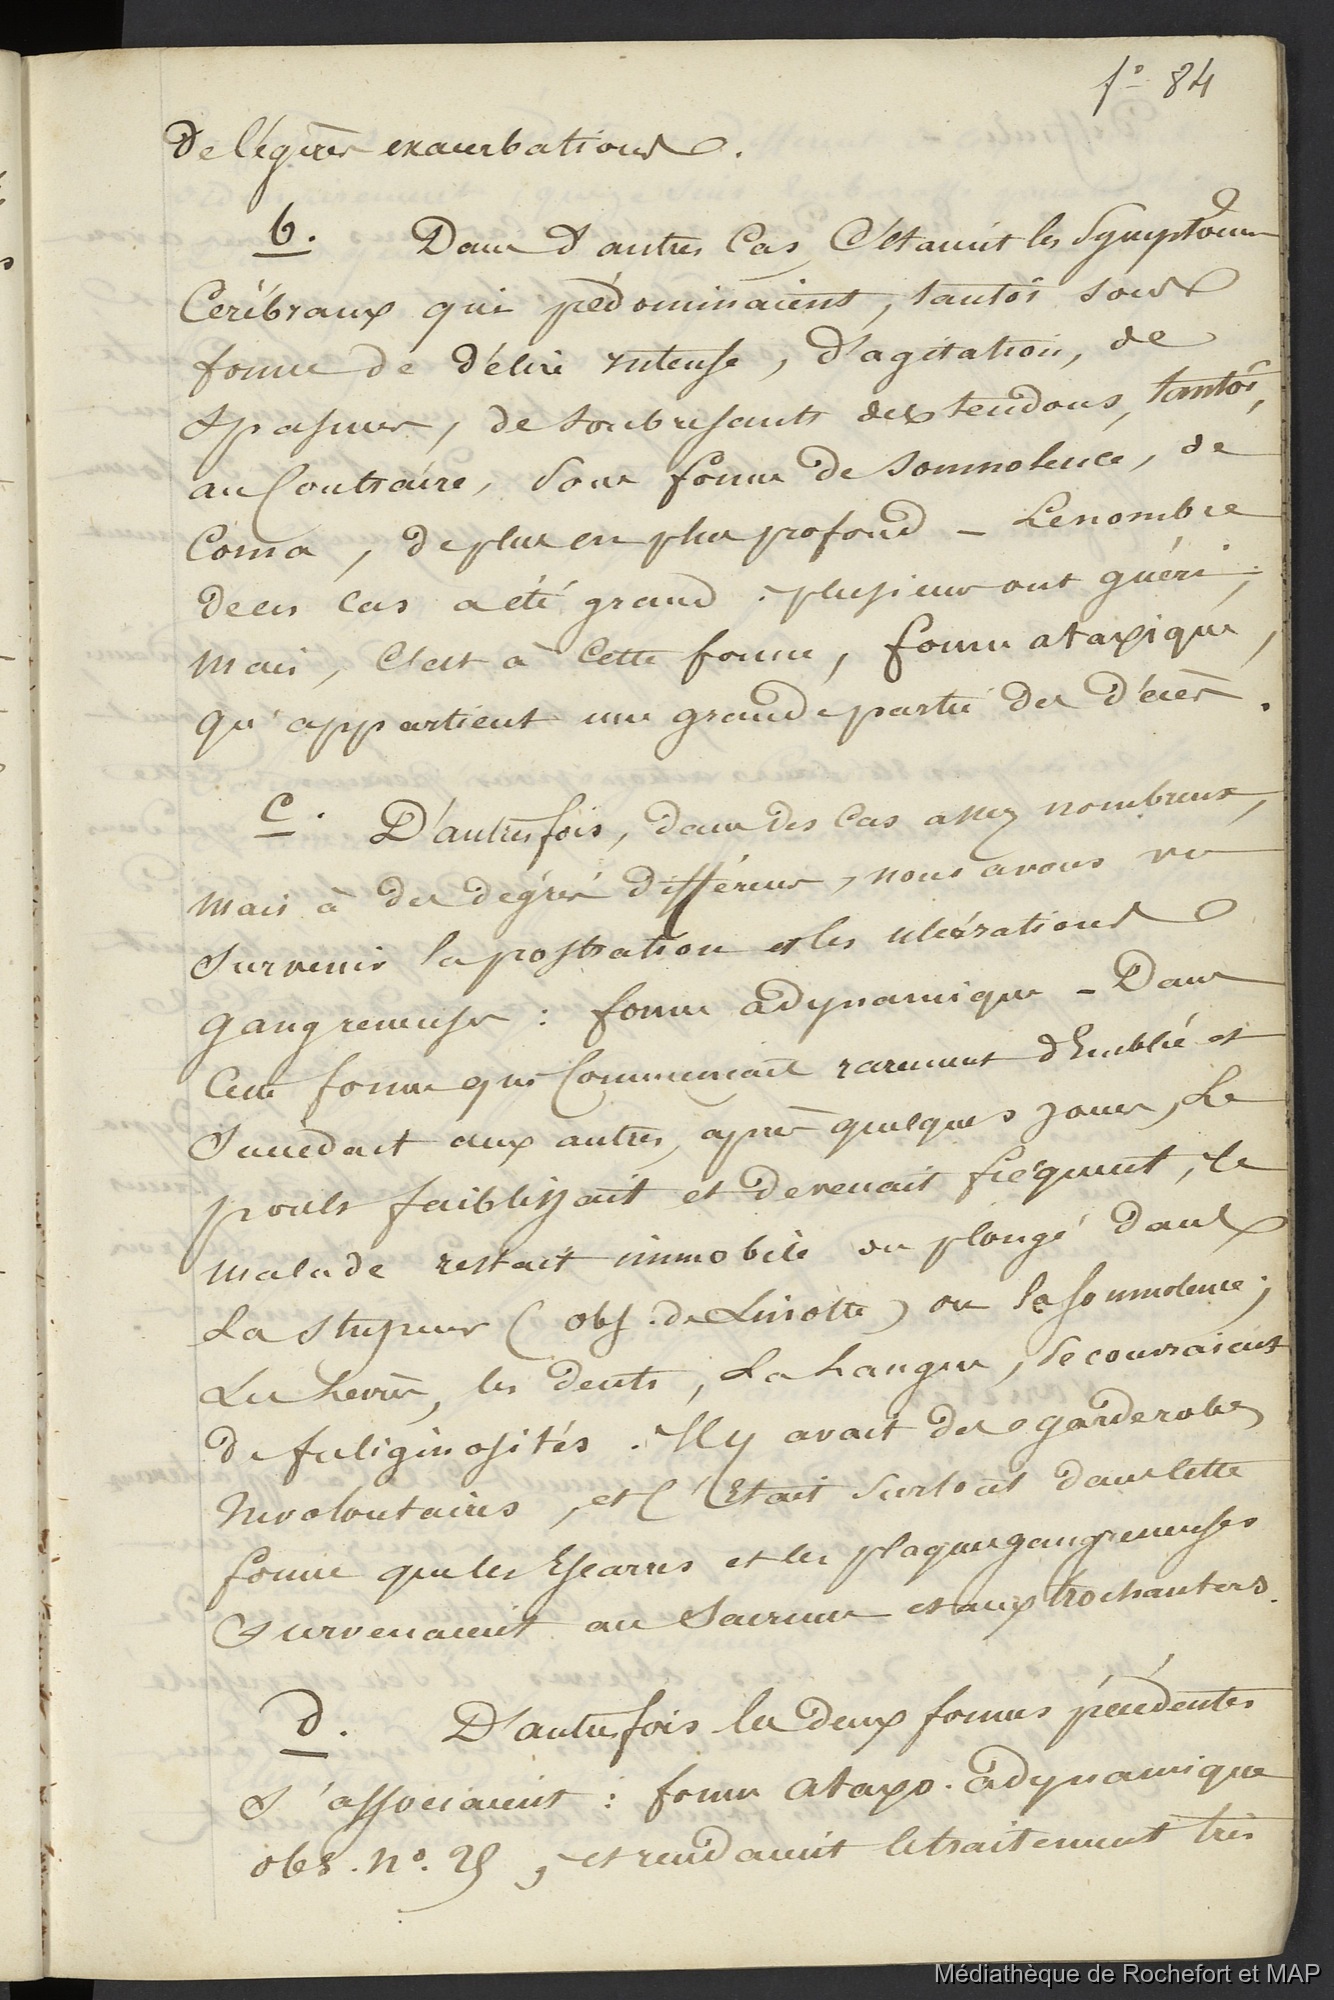 f° 84
De légères exacerbations.
b. Dans d'autres cas, C'étaient les Symptômes
Cérébraux qui prédominaient, tantôt sous
forme de délire intense, d'agitation, de
Spasmes, de soubresauts des tendons, tantôt,
au Contraire, sous forme de somnolence, de
Coma, de plus en plus profond – Le nombre
de ces cas a été grand : plusieurs ont guéri ;
mais, C'est à cette forme, forme ataxique,
qu'appartient une grande partie des décès.
C. D'autres fois, dans des cas assez nombreux,
mais à des dégrés différens, nous avons vu
Survenir la postration et les ulcérations
gangreneuses : forme adynamique – Dans
Cette forme qui Commencait rarement d'Emblée et
Succedait aux autres, après quelques jours, Le
pouls faiblissait et devenait fréquent, le
malade restait immobile ou plongé dans
La stupeur (obs. de Linotte) ou la somnolence ;
Les Levres, les dents, La Langue, se couvraient
de fuliginosités. Il y avait des garderobes
Involontaires, et C'Etait Surtout dans cette
forme que les Escarres et les plaques gangreneuses
Survenaient au Sacrum et aux trochanters.
d. D'autres fois les deux formes précédentes
S'associaient : forme ataxo-adynamique
obs. n°. 25, et rendaient le traitement très
Médiathèque de Rochefort et MAP